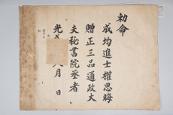 勅命
成均進士權思海
贈正三品通政大
夫秘書院丞者
光
八月 日